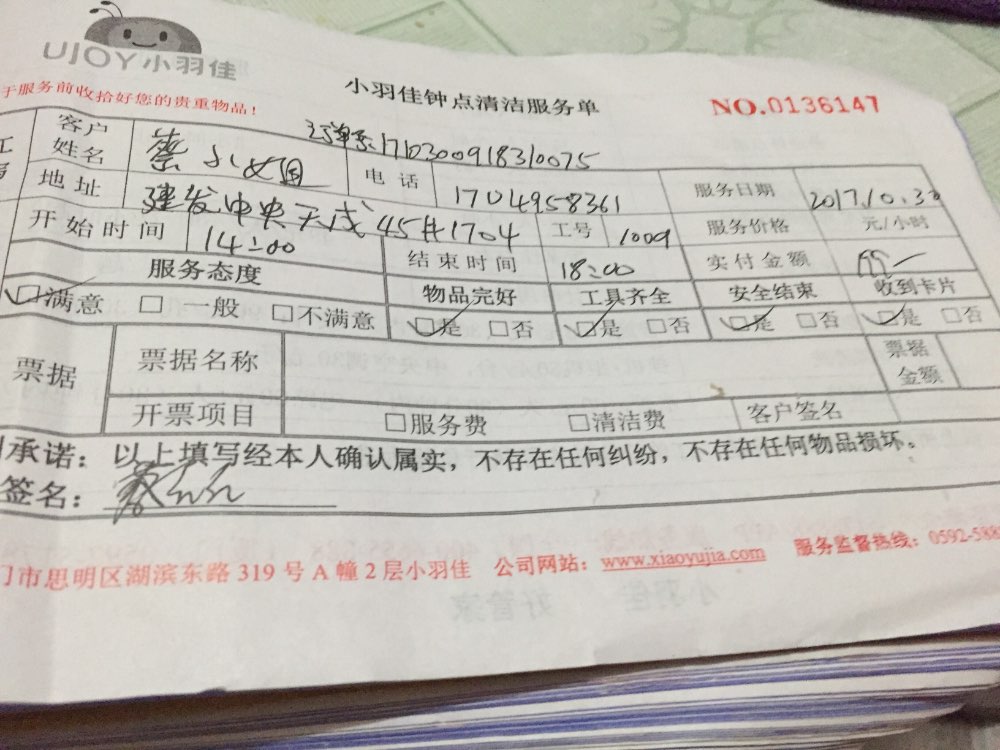 UJOY小羽佳
小羽佳钟点清洁服务单
NO.0136147
于服务前收拾好您的贵重物品!
客户姓名 蔡小姐
1710300918310075
电话 17049583361
服务日期 2017.10.30
地址 建发中央天成45#1704
工号 1009
服务价格 元/小时
开始时间 14:00
结束时间 18:00
实付金额
服务态度 物品完好 工具齐全 安全结束 收到卡片
☑满意 □一般 □不满意 ☑是 □否 ☑是 □否 ☑是 □否 ☑是 □否
票据 票据名称 票据金额
开票项目 □服务费 □清洁费 客户签名
承诺:以上填写经本人确认属实,不存在任何纠纷,不存在任何物品损坏。
签名:
门市思明区湖滨东路 319 号 A 幢 2 层小羽佳 公司网站:www.xiaoyujia.com 服务监督热线:0592-588